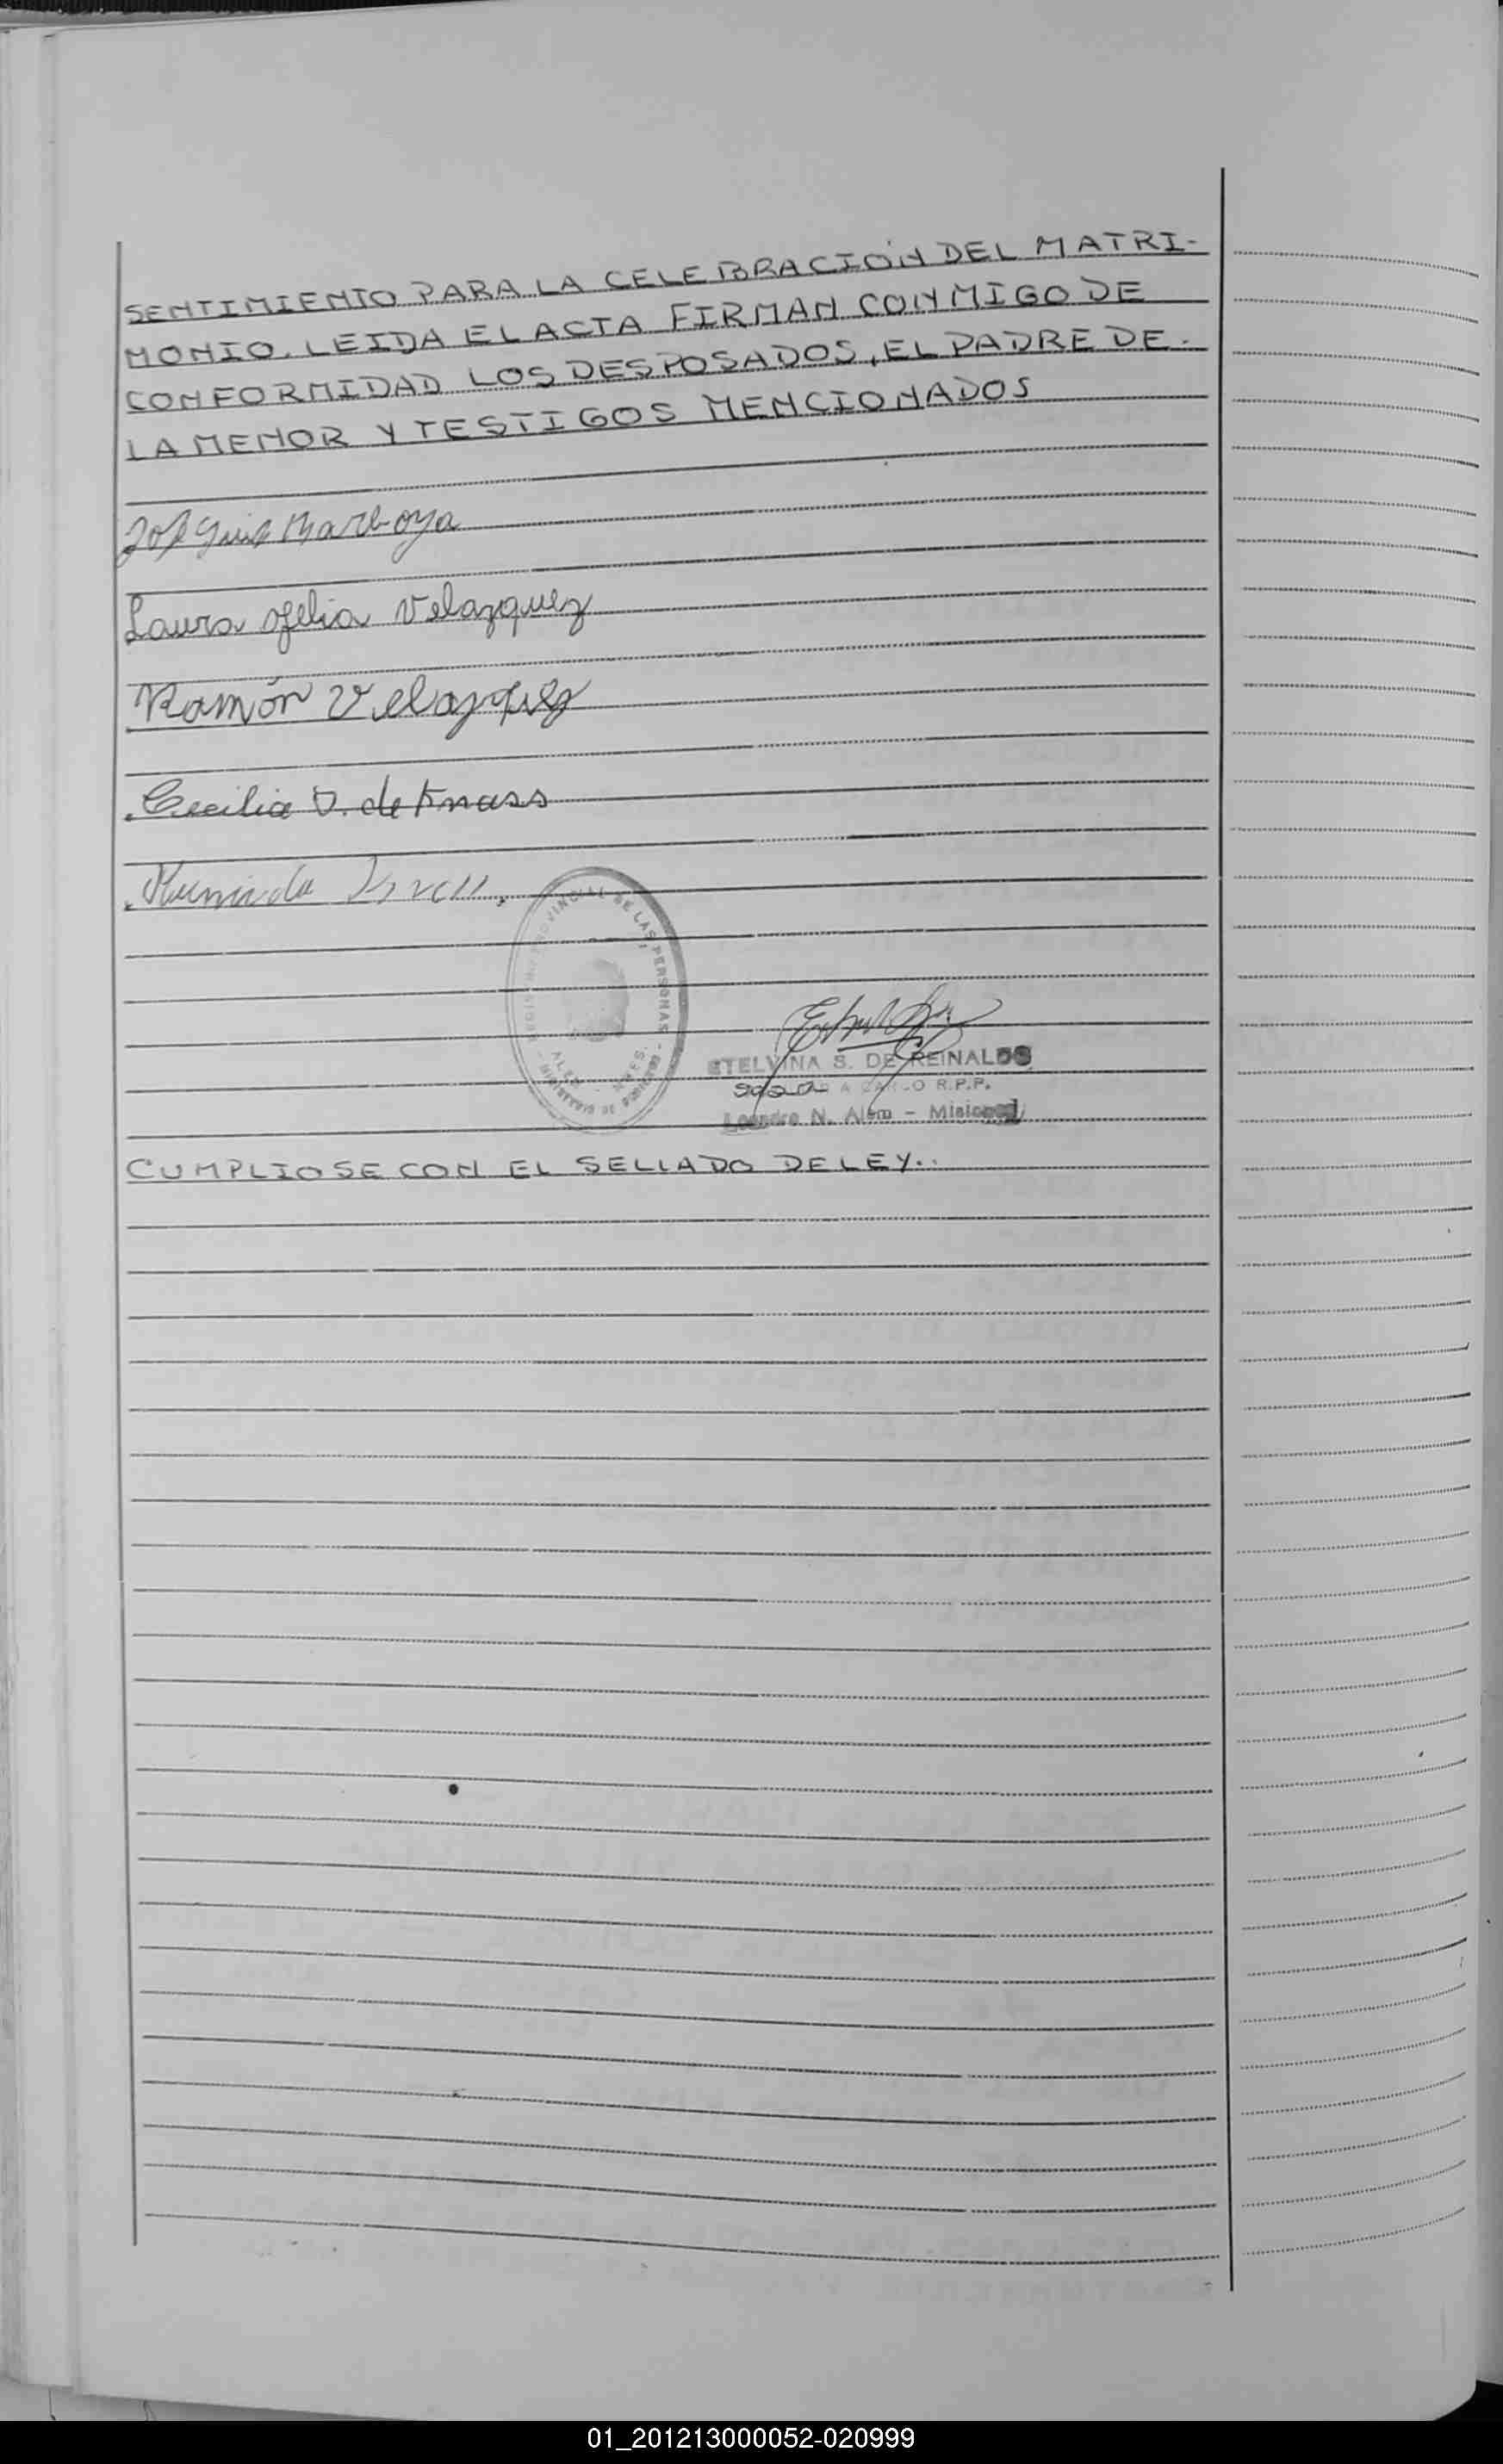 SENTIMIENTO PARA LA CELEBRACIÓN DEL MATRI-
MONIO. LEIDA EL ACTA FIRMAN CONMIGO DE
CONFORMIDAD LOS DESPOSADOS, EL PADRE DE
LA MENOR Y TESTIGOS MENCIONADOS
Luis Barboza
Laura Ofelia Velazquez
Ramón Velazquez
Cecilia D. de Knass
PROVINCIAL DE LAS PERSONAS
ALEM - MNES.
MINISTERIO DE GOBIERNO
ETELVINA S. DE REINALDOS
A CARGO R.P.P.
Leandro N. Alem - Misiones
CUMPLIOSE CON EL SELLADO DE LEY..
01_201213000052-020999